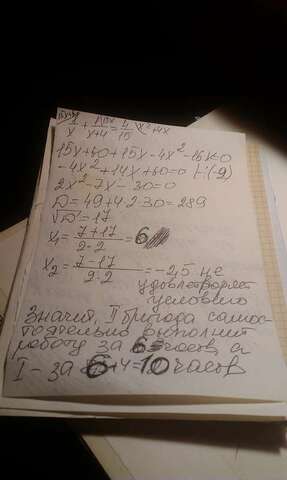 1/x + 1/x+4 = 4/15
15x+60+15x-4x²-16x=0
-4x²+14x+60=0 |:(-2)
2x²-7x-30=0
D=49+4·2·30=289
√D=17
x₁=7+17/2·2=6
x₂=7-17/2·2=-2,5 не
удовлетворяет
условию
Значит, II бригада самос-
тоятельно выполнит
работу за 6 часов, а
I - за 6+4=10 часов